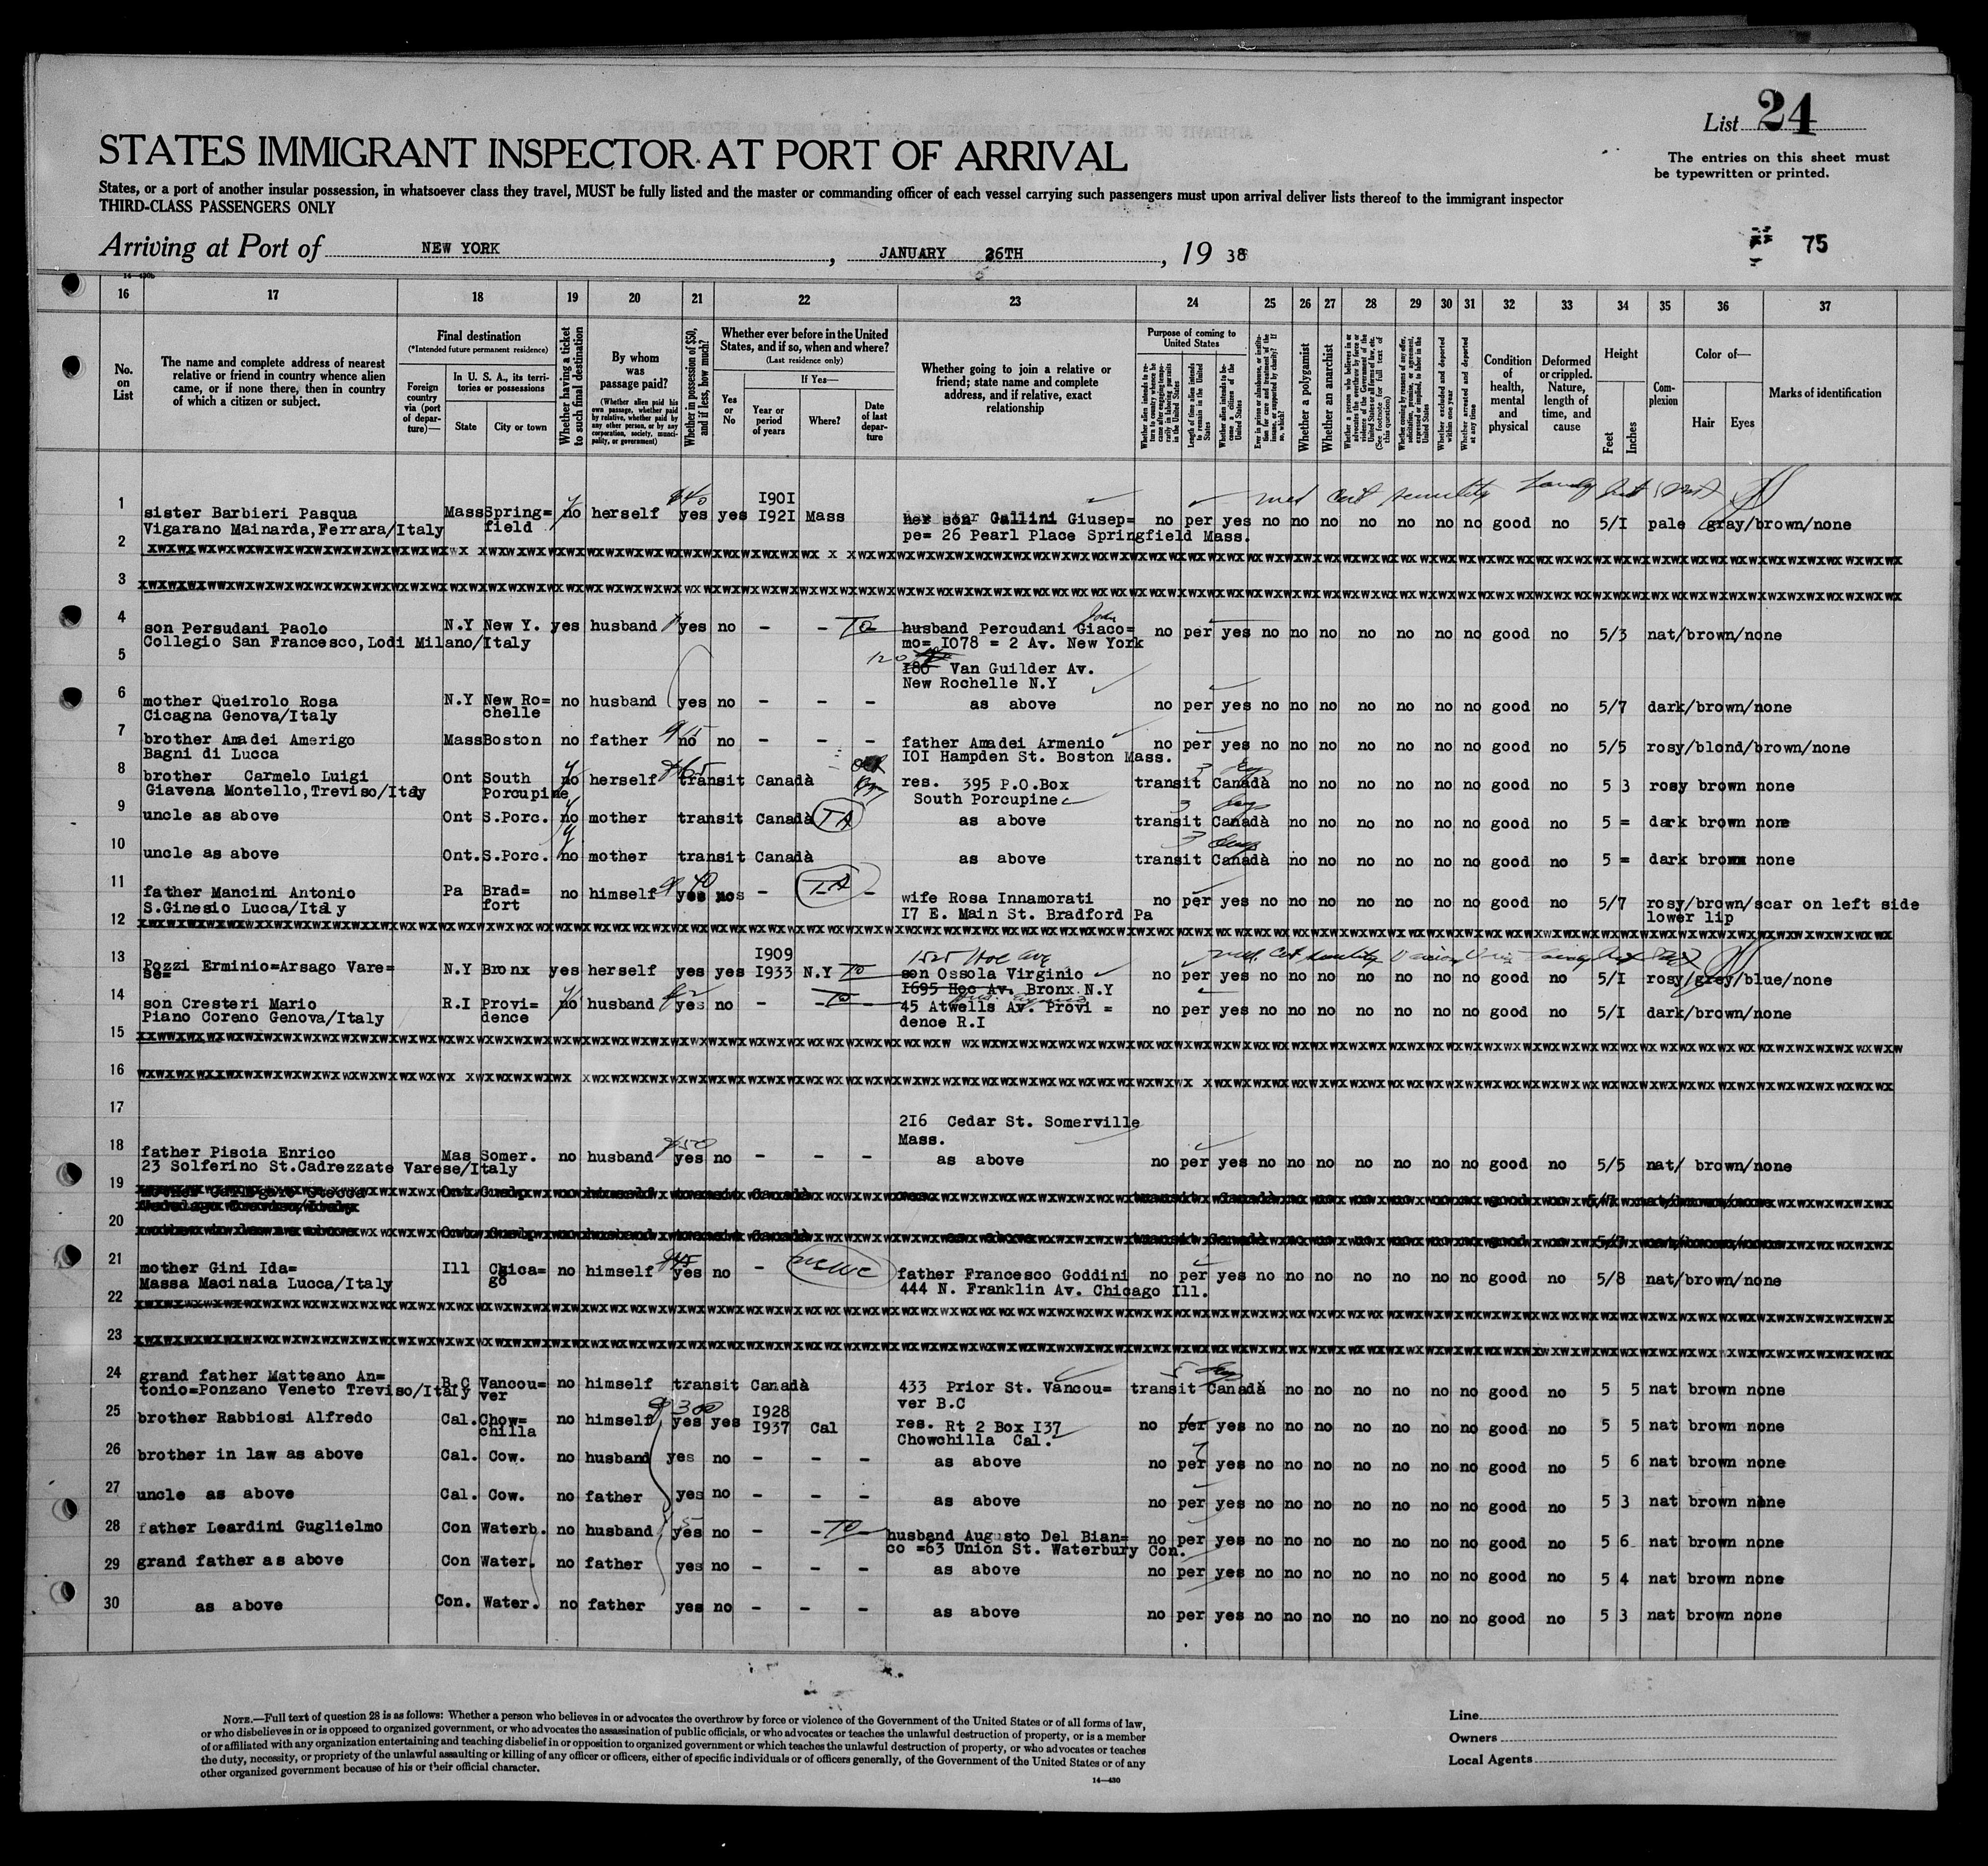 List 24
STATES IMMIGRANT INSPECTOR AT PORT OF ARRIVAL
The entries on this sheet must
be typewritten or printed.
States, or a port of another insular possession, in whatsoever class they travel, MUST be fully listed and the master or commanding officer of each vessel carrying such passengers must upon arrival deliver lists thereof to the immigrant inspector
THIRD-CLASS PASSENGERS ONLY
Arriving at Port of NEW YORK, JANUARY 26TH, 19 38
75
14—430b
16 17 18 19 20 21 22 23 24 25 26 27 28 29 30 31 32 33 34 35 36 37
No. on List
The name and complete address of nearest relative or friend in country whence alien came, or if none there, then in country of which a citizen or subject.
Final destination
(*Intended future permanent residence)
Foreign country via (port of departure)—
In U. S. A., its territories or possessions
State
City or town
Whether having a ticket to such final destination
By whom was passage paid?
(Whether alien paid his own passage, whether paid by relative, whether paid by any other person, or by any corporation, society, municipality, or government)
Whether in possession of $50, and if less, how much?
Whether ever before in the United States, and if so, when and where?
(Last residence only)
Yes or No
If Yes—
Year or period of years
Where?
Date of last departure
Whether going to join a relative or friend; state name and complete address, and if relative, exact relationship
Purpose of coming to United States
Whether a polygamist
Whether an anarchist
Whether excluded and deported within one year
Whether arrested and deported at any time
Condition of health, mental and physical
Deformed or crippled. Nature, length of time, and cause
Height
Feet
Inches
Complexion
Color of—
Hair
Eyes
Marks of identification
1 sister Barbieri Pasqua Mass Spring= no herself $40 yes yes 1901 1921 Mass her son Gallini Giusep= no per yes no no no no no no no good no 5/1 pale gray/brown/none
Vigarano Mainarda,Ferrara/Italy field pe= 26 Pearl Place Springfield Mass.
2
3
4 son Persudani Paolo N.Y New Y. yes husband yes no - - husband Percudani Giaco= no per yes no no no no no no no good no 5/3 nat/brown/none
Collegio San Francesco,Lodi Milano/Italy mo= 1078 = 2 Av. New York
5 180 Van Guilder Av.
New Rochelle N.Y
6 mother Queirolo Rosa N.Y New Ro= no husband yes no - - - as above no per yes no no no no no no no good no 5/7 dark/brown/none
Cicagna Genova/Italy chelle
7 brother Amadei Amerigo Mass Boston no father no no - - - father Amadei Armenio no per yes no no no no no no no good no 5/5 rosy/blond/brown/none
Bagni di Lucca 101 Hampden St. Boston Mass.
8 brother Carmelo Luigi Ont South no herself transit Canadà res. 395 P.O.Box transit Canadà no no no no no no no good no 5 3 rosy brown none
Giavena Montello,Treviso/Italy Porcupine South Porcupine
9 uncle as above Ont S.Porc. no mother transit Canadà TA as above transit Canadà no no no no no no no good no 5 = dark brown none
10 uncle as above Ont. S.Porc. no mother transit Canadà as above transit Canadà no no no no no no no good no 5 = dark brown none
11 father Mancini Antonio Pa Brad= no himself 40 yes - - wife Rosa Innamorati no per yes no no no no no no no good no 5/7 rosy/brown/scar on left side
S.Ginesio Lucca/Italy fort 17 E. Main St. Bradford Pa lower lip
12
13 Pozzi Erminio=Arsago Vare= N.Y Bronx yes herself yes yes 1909 1933 N.Y 1525 Hoe Ave son Ossola Virginio no per yes no no no no no no no good no 5/1 rosy/grey/blue/none
se= 1695 Hoe Av. Bronx N.Y
14 son Cresteri Mario R.I Provi= no husband yes no - - 45 Atwells Av. Provi = no per yes no no no no no no no good no 5/1 dark/brown/none
Piano Coreno Genova/Italy dence dence R.I
15
16
17 216 Cedar St. Somerville
Mass.
18 father Piscia Enrico Mas Somer. no husband $50 yes no - - - as above no per yes no no no no no no no good no 5/5 nat/ brown/none
23 Solferino St.Cadrezzate Varese/Italy
19
20
21 mother Gini Ida= Ill Chica= no himself $45 yes no - father Francesco Goddini no per yes no no no no no no no good no 5/8 nat/brown/none
Massa Macinaia Lucca/Italy go 444 N. Franklin Av. Chicago Ill.
22
23
24 grand father Matteano An= B.C Vancou= no himself transit Canadà 433 Prior St. Vancou= transit Canadà no no no no no no no good no 5 5 nat brown none
tonio=Ponzano Veneto Treviso/Italy ver ver B.C
25 brother Rabbiosi Alfredo Cal. Chow= no himself $300 yes yes 1928 1937 Cal res. Rt 2 Box 137 no per yes no no no no no no no good no 5 5 nat brown none
chilla Chowchilla Cal.
26 brother in law as above Cal. Cow. no husband yes no - - - as above no per yes no no no no no no no good no 5 6 nat brown none
27 uncle as above Cal. Cow. no father yes no - - - as above no per yes no no no no no no no good no 5 3 nat brown none
28 father Leardini Guglielmo Con Waterb. no husband yes no - - husband Augusto Del Bian= no per yes no no no no no no no good no 5 6 nat brown none
co =63 Union St. Waterbury Con.
29 grand father as above Con Water. no father yes no - - - as above no per yes no no no no no no no good no 5 4 nat brown none
30 as above Con. Water. no father yes no - - - as above no per yes no no no no no no no good no 5 3 nat brown none
NOTE.—Full text of question 28 is as follows: Whether a person who believes in or advocates the overthrow by force or violence of the Government of the United States or of all forms of law,
or who disbelieves in or is opposed to organized government, or who advocates the assassination of public officials, or who advocates or teaches the unlawful destruction of property, or is a member
of or affiliated with any organization entertaining and teaching disbelief in or opposition to organized government or which teaches the unlawful destruction of property, or who advocates or teaches
the duty, necessity, or propriety of the unlawful assaulting or killing of any officer or officers, either of specific individuals or of officers generally, of the Government of the United States or of any
other organized government because of his or their official character.
14—430
Line
Owners
Local Agents